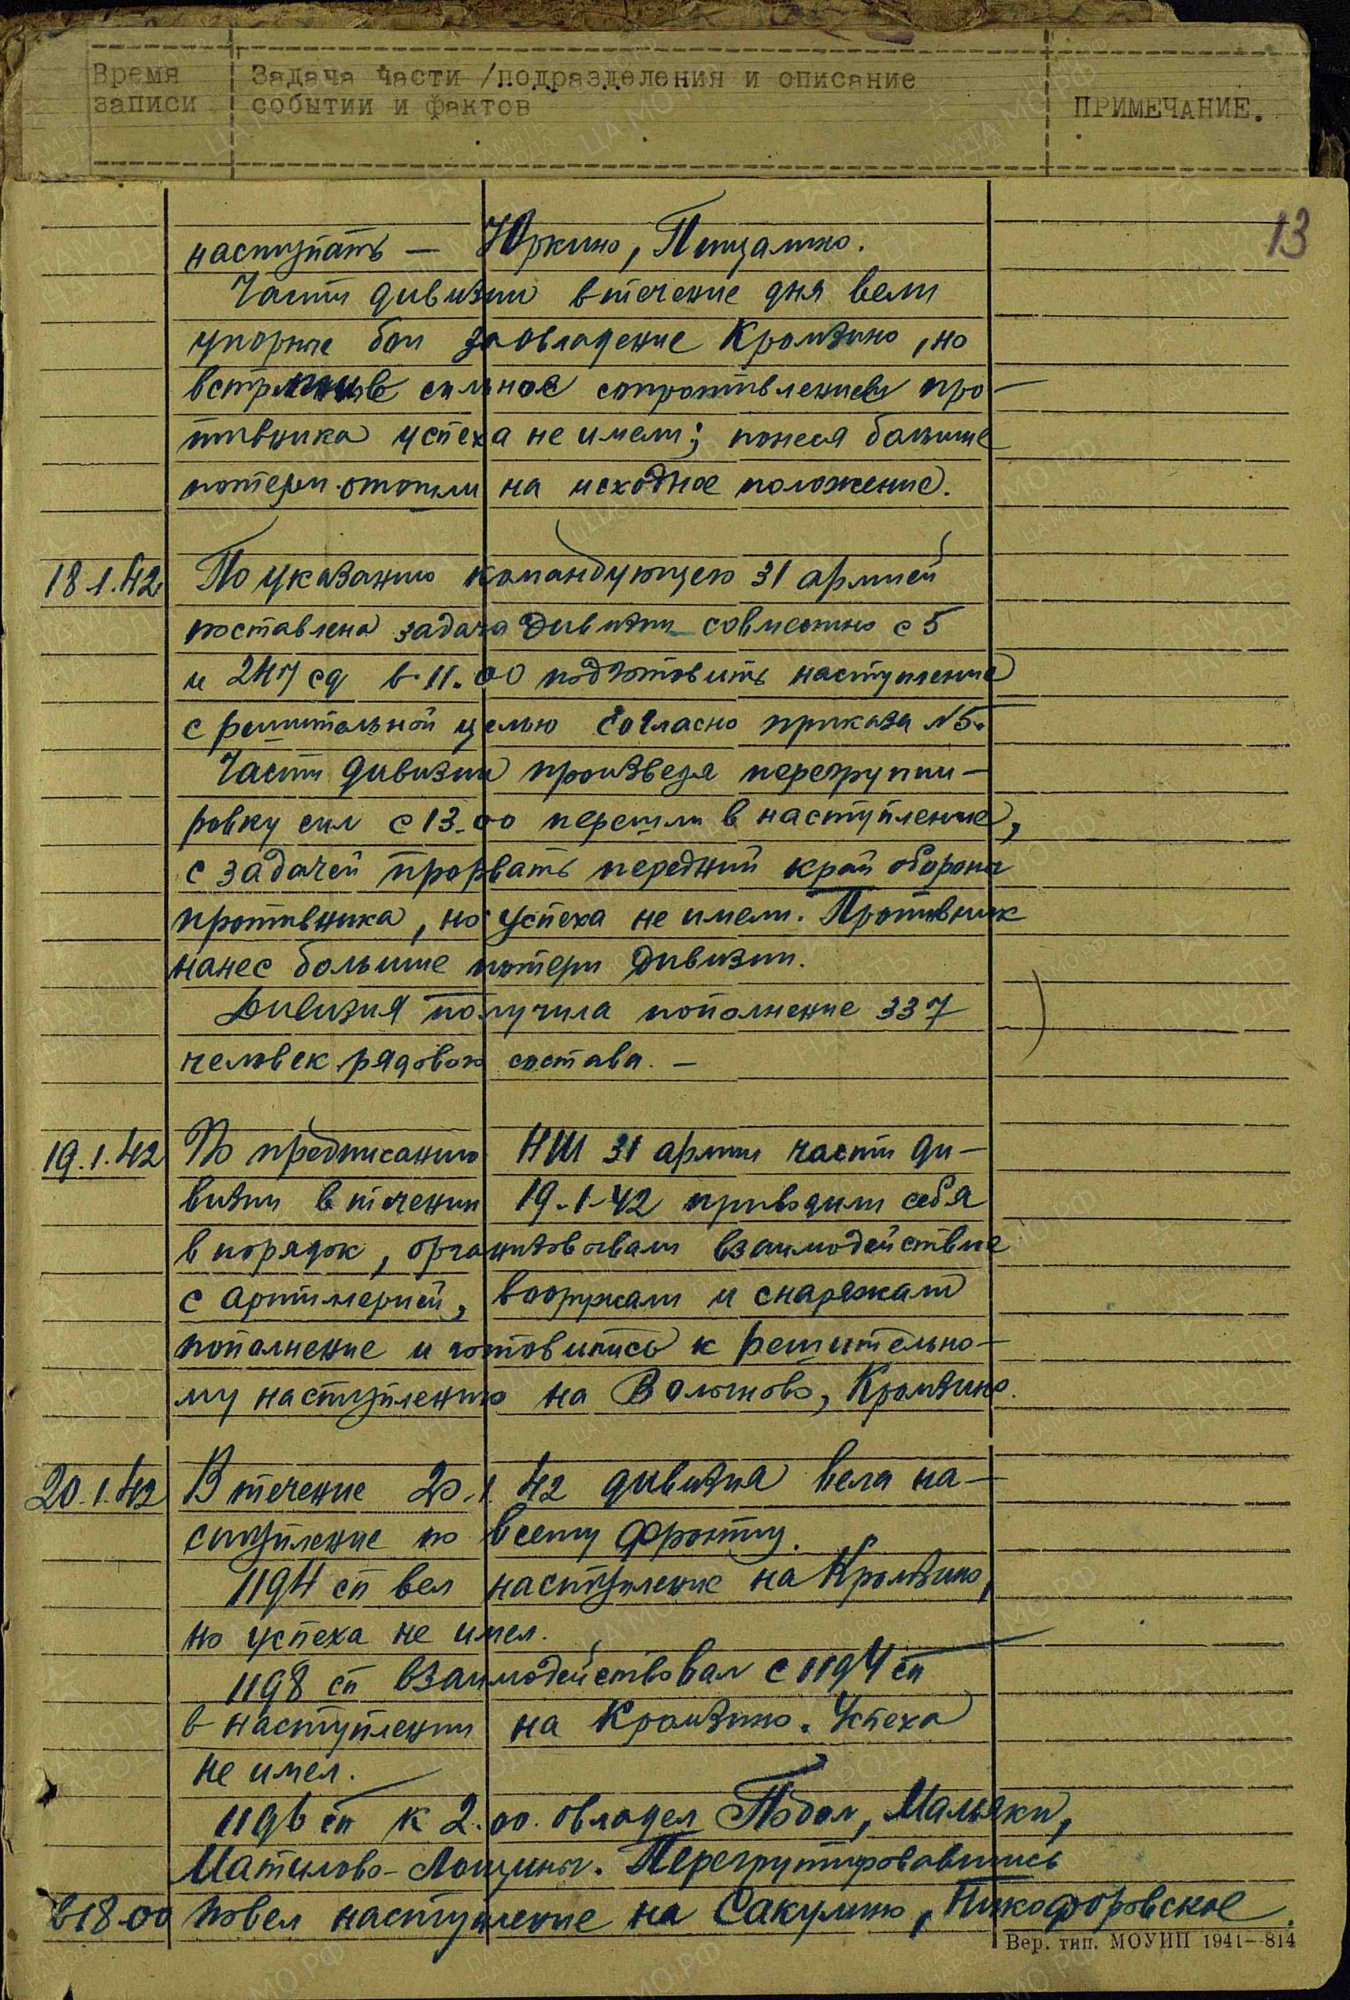 Время записи
Задача части /подразделения и описание
событии и фактов
ПРИМЕЧАНИЕ.
13
наступать — Юркино, Пищалино.
Части дивизии в течение дня вели
упорные бои за овладение Кромзино, но
встретив сильное сопротивление про-
тивника успеха не имели; понеся большие
потери отошли на исходное положение.
18.1.42 По указанию командующего 31 армией
поставлена задача дивизии совместно с 5
и 247 сд в 11.00 подготовить наступление
с решительной целью согласно приказа №5.
Части дивизии произведя перегруппи-
ровку сил с 13.00 перешли в наступление,
с задачей прорвать передний край обороны
противника, но успеха не имели. Противник
нанес большие потери дивизии.
Дивизия получила пополнение 337
человек рядового состава. —
19.1.42 По предписанию НШ 31 армии части ди-
визии в течении 19.1.42 приводили себя
в порядок, организовывали взаимодействие
с артилерией, вооружали и снаряжали
пополнение и готовились к решительно-
му наступлению на Волыново, Кромзино.
20.1.42 В течение 20.1.42 дивизия вела на-
ступление по всему фронту.
1194 сп вел наступление на Кромзино,
но успеха не имел.
1198 сп взаимодействовал с 1194 сп
в наступлении на Кромзино. Успеха
не имел.
1196 сп к 2.00. овладел Подол, Мальяки,
Матюково-Лощины. Перегруппировавшись
в 18.00 повел наступление на Сакулино, Никофоровское.
Вер. тип. МОУИП 1941—814